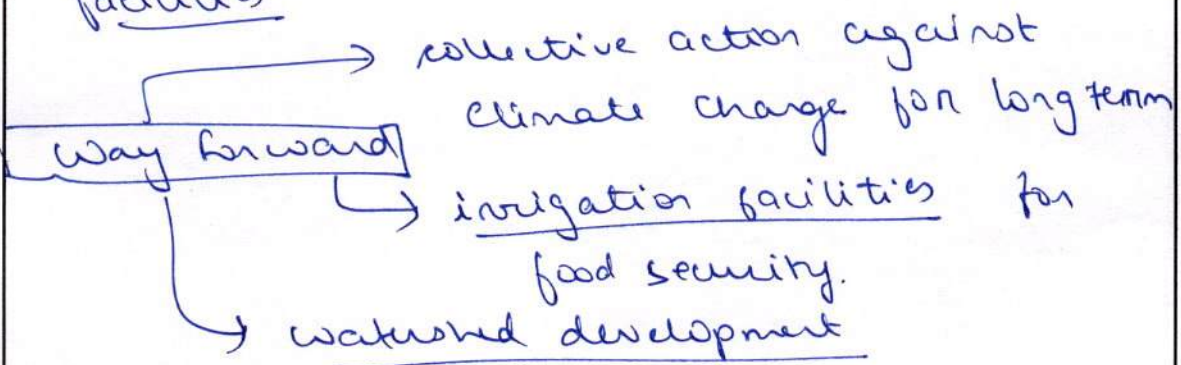 facilities
collective action against
climate change for long term
Way forward
irrigation facilities for
food security.
watershed development